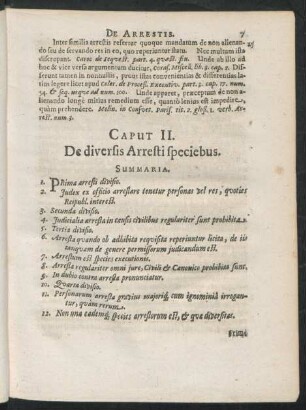 DE ARRESTIS. 7
Inter similia arrestis refertur quoque mandatum de non alienan-
do seu de servando res in eo, quo reperiuntur statu. Nec multum ista
discrepant. Caroc de sequestr. part. 4. quæst. fin. Unde ab illo ad
hoc & vice versa argumentum ducitur,
ferunt tamen in nonnullis, prout istas convenientias & differentias la-
tius legere licet apud
34. & seq. usque ad num. 100. Unde apparet, præceptum de non a-
limenando longè mitius remedium esse, quanto lenius est impedire,
quàm prehendere. Molin. in Consvet. Paris. tit. 2. glos. 1. verb. Ar-
rest. num 3.
CAPUT II.
De diversis Arresti speciebus.
SUMMARIA.
1. PRima arresti divisio.
2. Judex ex officio arrestare tenetur personas vel res, quoties
Reipubl. interest.
3. Secunda divisio.
4. Judicialia arresta in censis civilibus regulariter sunt prohibita.
5. Tertia divisio.
6. Arresta quando ob adhibita requisita reperiuntur licita, de iis
tanquam de genere permissorum judicandum est.
7. Arrestum est species executionis.
8. Arresta regulariter omni jure, Civili & Canonico prohibita sunt.
9. In dubio contra arresta pronunciatur.
10. Quarta divisio.
11. Personarum arresta gravius majoriq; cum ignominiâ irrogan-
tur, quàm rerum.
12. Non una eademq; species arrestorum est, & quæ diversitas.